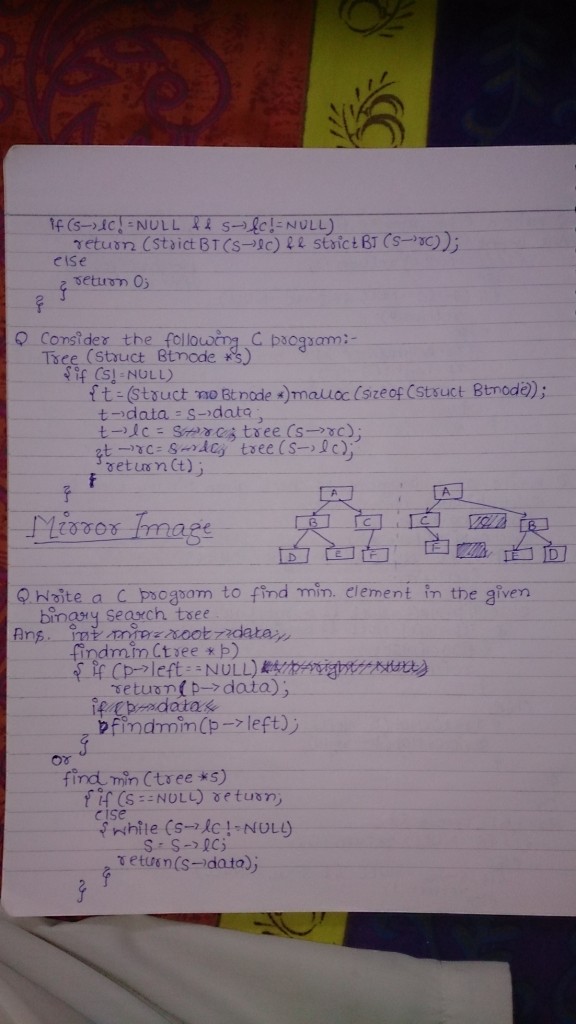 if (s→lc! = NULL && s→lc! = NULL)
return (StrictBT (s→lc) && strictBT (s→rc));
else
return 0;
}
}
Q Consider the following C program:-
Tree (Struct Btnode *s)
{ if (s! = NULL)
{ t = (Struct Btnode *) malloc (sizeof (Struct Btnode));
t→data = s→data;
t→lc = tree (s→rc);
t→rc = tree (s→lc);
} return (t);
}
Mirror Image
A
B C
D E F
A
C B
F E D
Q. Write a C program to find min. element in the given
binary search tree.
Ans. int min = root→data;
findmin (tree *p)
{ if (p→left == NULL)
return (p→data);
if (p→data
findmin (p→left);
}
or
find min (tree *s)
{ if (s == NULL) return;
else
{ while (s→lc ! = NULL)
s = s→lc;
return (s→data);
}
}